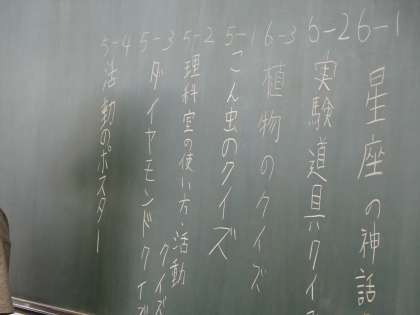 6-1 星座の神話
6-2 実験道具クイ
6-3 植物のクイズ
5-1 こん虫のクイズ
5-2 理科室の使い方・活動クイズ
5-3 ダイヤモンドクイズ
5-4 活動のポスター